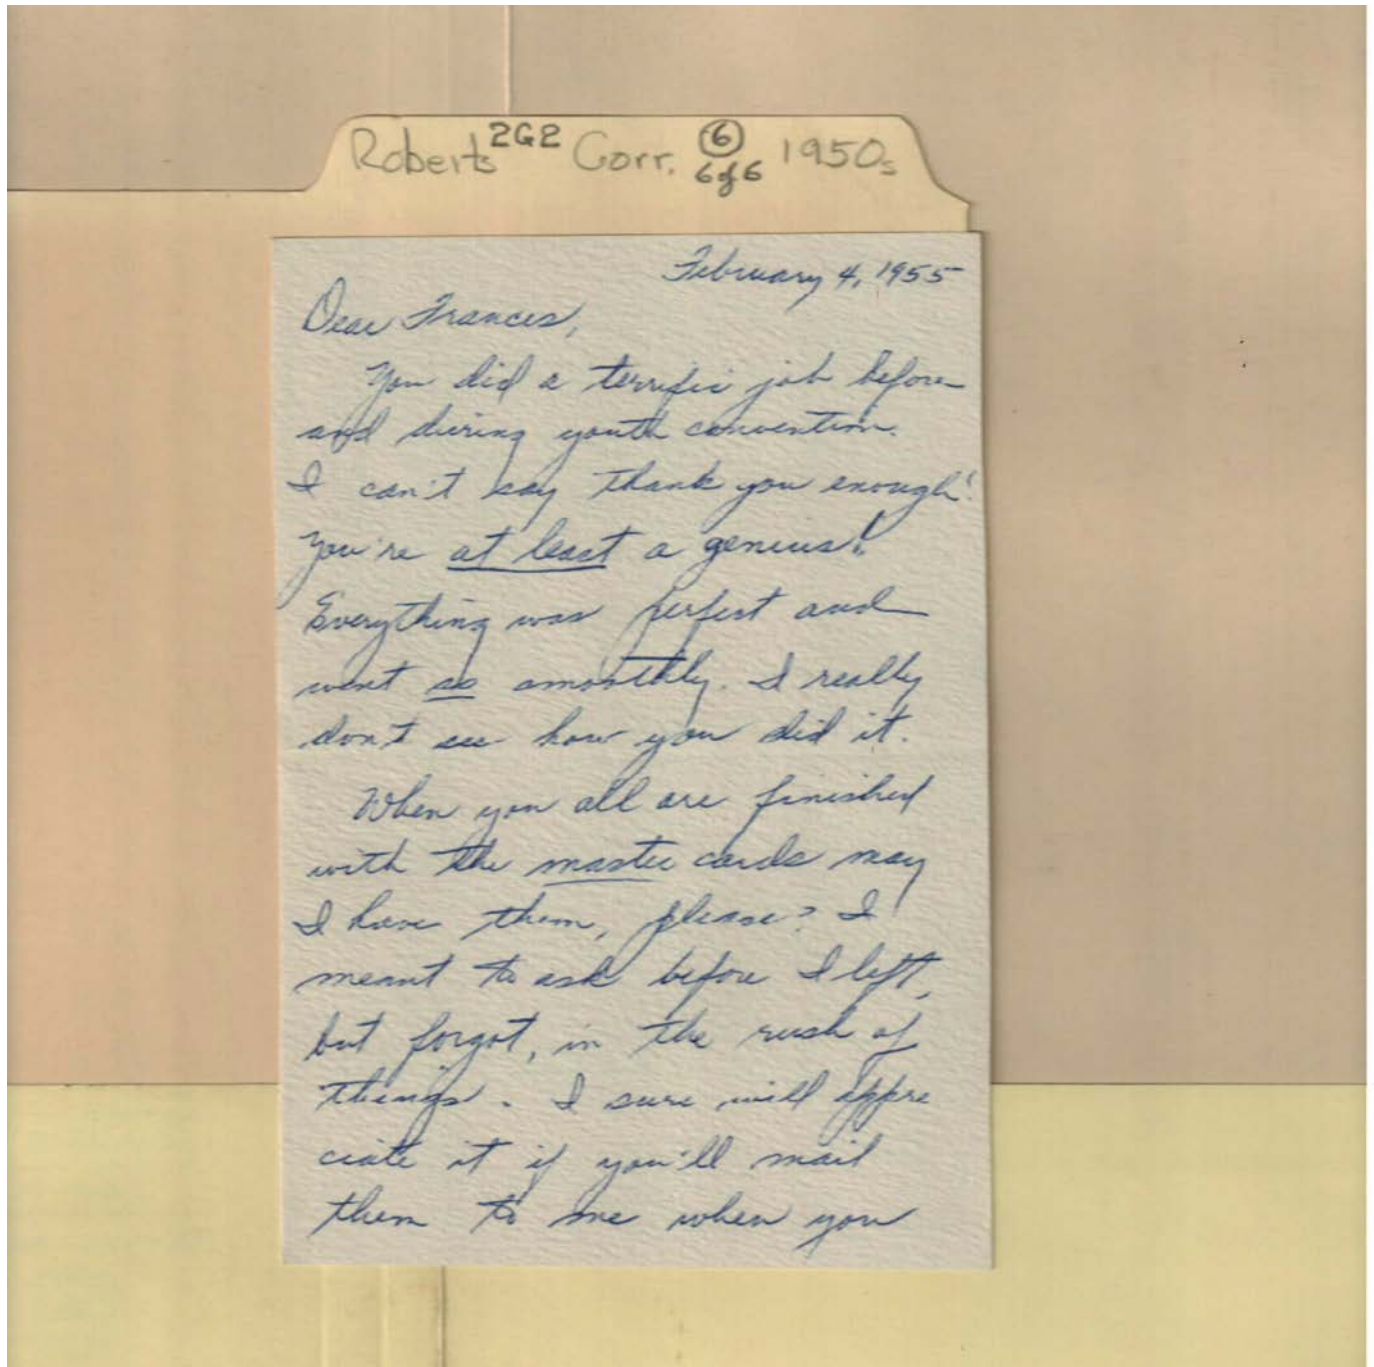 Roberts 2G2 Corr. 6 1950s
6 of 6
February 4, 1955
Dear Frances,
You did a terrific job before
and during youth convention.
I can't say thank you enough!
You're at least a genius!
Everything was perfect and
went so smoothly. I really
don't see how you did it.
When you all are finished
with the master cards may
I have them, please? I
meant to ask before I left,
but forgot, in the rush of
things. I sure will appre
ciate it if you'll mail
them to me when you